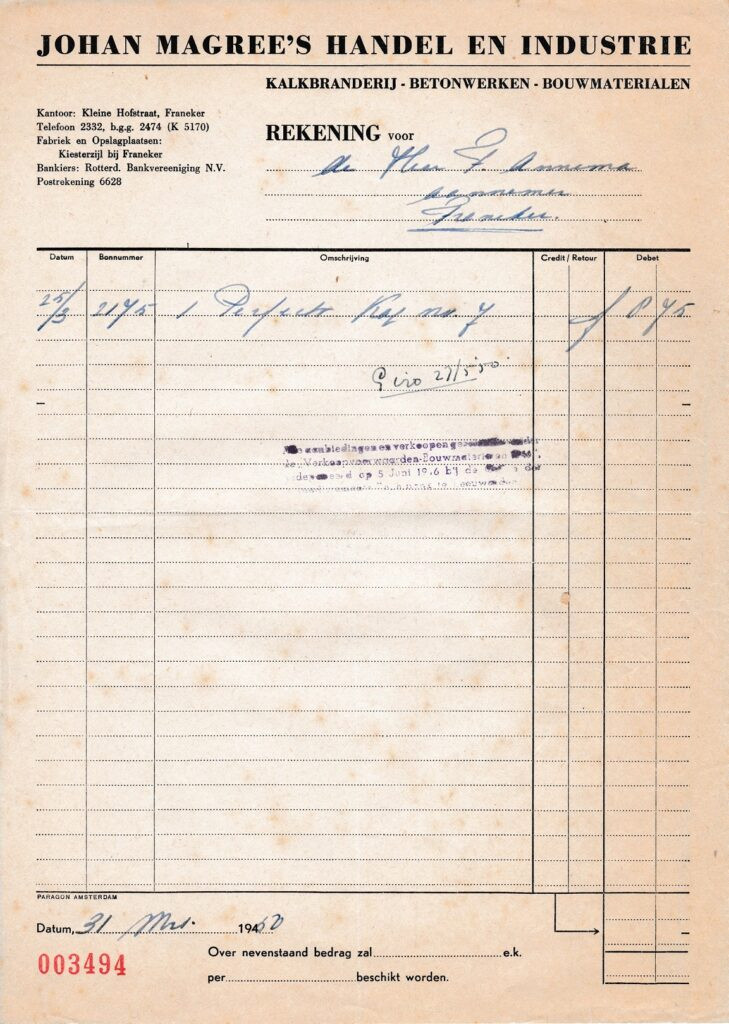 JOHAN MAGREE'S HANDEL EN INDUSTRIE
KALKBRANDERIJ - BETONWERKEN - BOUWMATERIALEN
Kantoor: Kleine Hofstraat, Franeker
Telefoon 2332, b.g.g. 2474 (K 5170)
Fabriek en Opslagplaatsen:
Kiesterzijl bij Franeker
Bankiers: Rotterd. Bankvereeniging N.V.
Postrekening 6628
REKENING voor
de Heer F. Annema
aannemer
Franeker.
Datum Bonnummer Omschrijving Credit / Retour Debet
25/3 2175 1 Perfecta Kap no. 7 f 8 75
Giro 27/5 50.
aanbiedingen en verkoopen
Verkoopvoorwaarden-Bouwmaterialen
op 5 Juni 19 6 bij de
PARAGON AMSTERDAM
Datum, 31 Mrt. 1950
003494
Over nevenstaand bedrag zal e.k.
per beschikt worden.